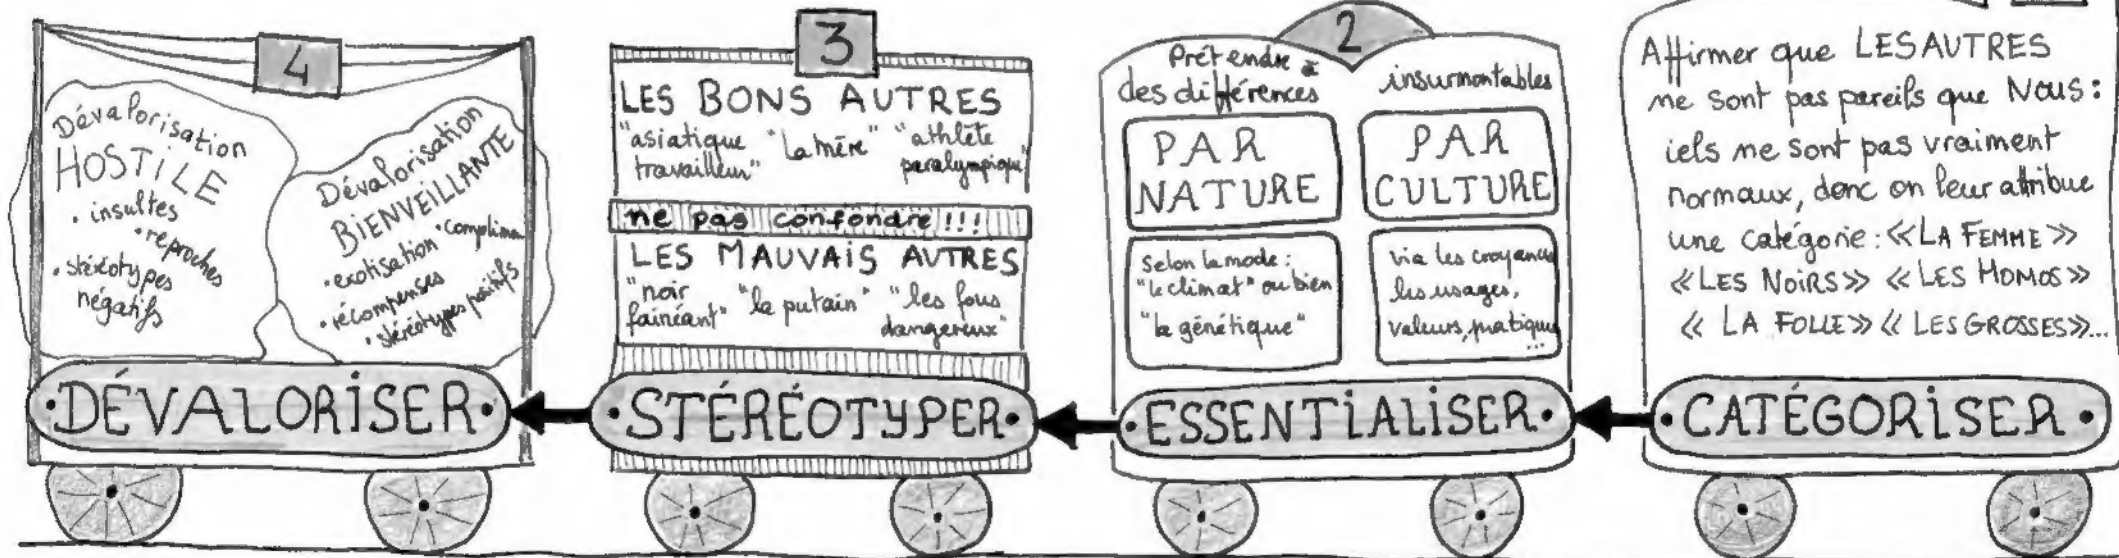 4
Dévalorisation
HOSTILE
• insultes
• reproches
• stéréotypes
négatifs
Dévalorisation
BIENVEILLANTE
• exotisation • complimen
• récompenses
• stéréotypes positifs
• DÉVALORISER •
3
LES BONS AUTRES
"asiatique "La mère" "athlète
travailleur" paralympique"
ne pas confondre !!!
LES MAUVAIS AUTRES
"noir "la putain" "les fous
fainéant" dangereux"
• STÉRÉOTYPER •
2
Prétendre à
des différences insurmontables
PAR
NATURE
Selon la mode :
"le climat" ou bien
"la génétique"
PAR
CULTURE
via les croyances
les usages,
valeurs, pratiques
...
• ESSENTIALISER •
Affirmer que LES AUTRES
ne sont pas pareils que NOUS :
iels ne sont pas vraiment
normaux, donc on leur attribue
une catégorie : «LA FEMME»
«LES NOIRS» «LES HOMOS»
«LA FOLLE» «LES GROSSES»...
• CATÉGORISER •